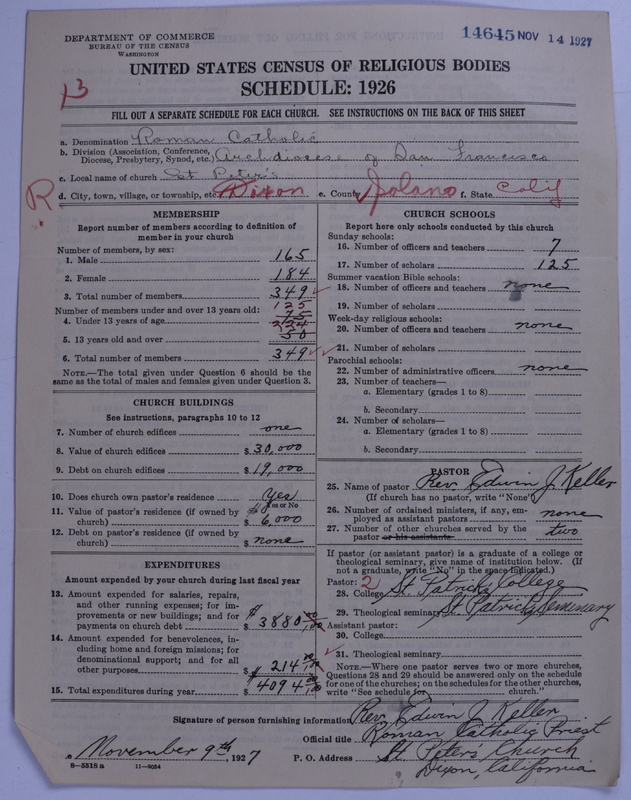 DEPARTMENT OF COMMERCE
BUREAU OF THE CENSUS
WASHINGTON
14645 NOV 14 1927
UNITED STATES CENSUS OF RELIGIOUS BODIES
SCHEDULE: 1926
13
FILL OUT A SEPARATE SCHEDULE FOR EACH CHURCH. SEE INSTRUCTIONS ON THE BACK OF THIS SHEET
a. Denomination Roman Catholic
b. Division (Association, Conference, Diocese, Presbytery, Synod, etc.) Archdiocese of San Francisco
c. Local name of church St Peter's
R
d. City, town, village, or township, etc. Dixon e. County Solano f. State Calif
MEMBERSHIP
Report number of members according to definition of member in your church
Number of members, by sex:
1. Male 165
2. Female 184
3. Total number of members 349
Number of members under and over 13 years old:
125
4. Under 13 years of age 75
224
5. 13 years old and over 50
6. Total number of members 349
NOTE.—The total given under Question 6 should be the same as the total of males and females given under Question 3.
CHURCH BUILDINGS
See instructions, paragraphs 10 to 12
7. Number of church edifices one
8. Value of church edifices $ 30,000
9. Debt on church edifices $ 19,000
10. Does church own pastor's residence Yes
Yes or No
11. Value of pastor's residence (if owned by church) $ 6,000
12. Debt on pastor's residence (if owned by church) $ none
EXPENDITURES
Amount expended by your church during last fiscal year
13. Amount expended for salaries, repairs, and other running expenses; for improvements or new buildings; and for payments on church debt $ 3880
14. Amount expended for benevolences, including home and foreign missions; for denominational support; and for all other purposes $ 214
15. Total expenditures during year $ 4094
CHURCH SCHOOLS
Report here only schools conducted by this church
Sunday schools:
16. Number of officers and teachers 7
17. Number of scholars 125
Summer vacation Bible schools:
18. Number of officers and teachers none
19. Number of scholars
Week-day religious schools:
20. Number of officers and teachers none
21. Number of scholars
Parochial schools:
22. Number of administrative officers none
23. Number of teachers—
a. Elementary (grades 1 to 8)
b. Secondary
24. Number of scholars—
a. Elementary (grades 1 to 8)
b. Secondary
PASTOR
25. Name of pastor Rev. Edwin J. Keller
(If church has no pastor, write "None")
26. Number of ordained ministers, if any, employed as assistant pastors none
27. Number of other churches served by the pastor or his assistants two
If pastor (or assistant pastor) is a graduate of a college or theological seminary, give name of institution below. (If not a graduate, write "No" in the space indicated.)
Pastor: 2
28. College St Patricks College
29. Theological seminary St Patricks Seminary
Assistant pastor:
30. College
31. Theological seminary
NOTE.—Where one pastor serves two or more churches, Questions 28 and 29 should be answered only on the schedule for one of the churches; on the schedules for the other churches, write "See schedule for church."
Signature of person furnishing information Rev. Edwin J. Keller
Official title Roman Catholic Priest
November 9th, 1927 P. O. Address St Peters Church
Dixon, California
8—5518 a 11—9054